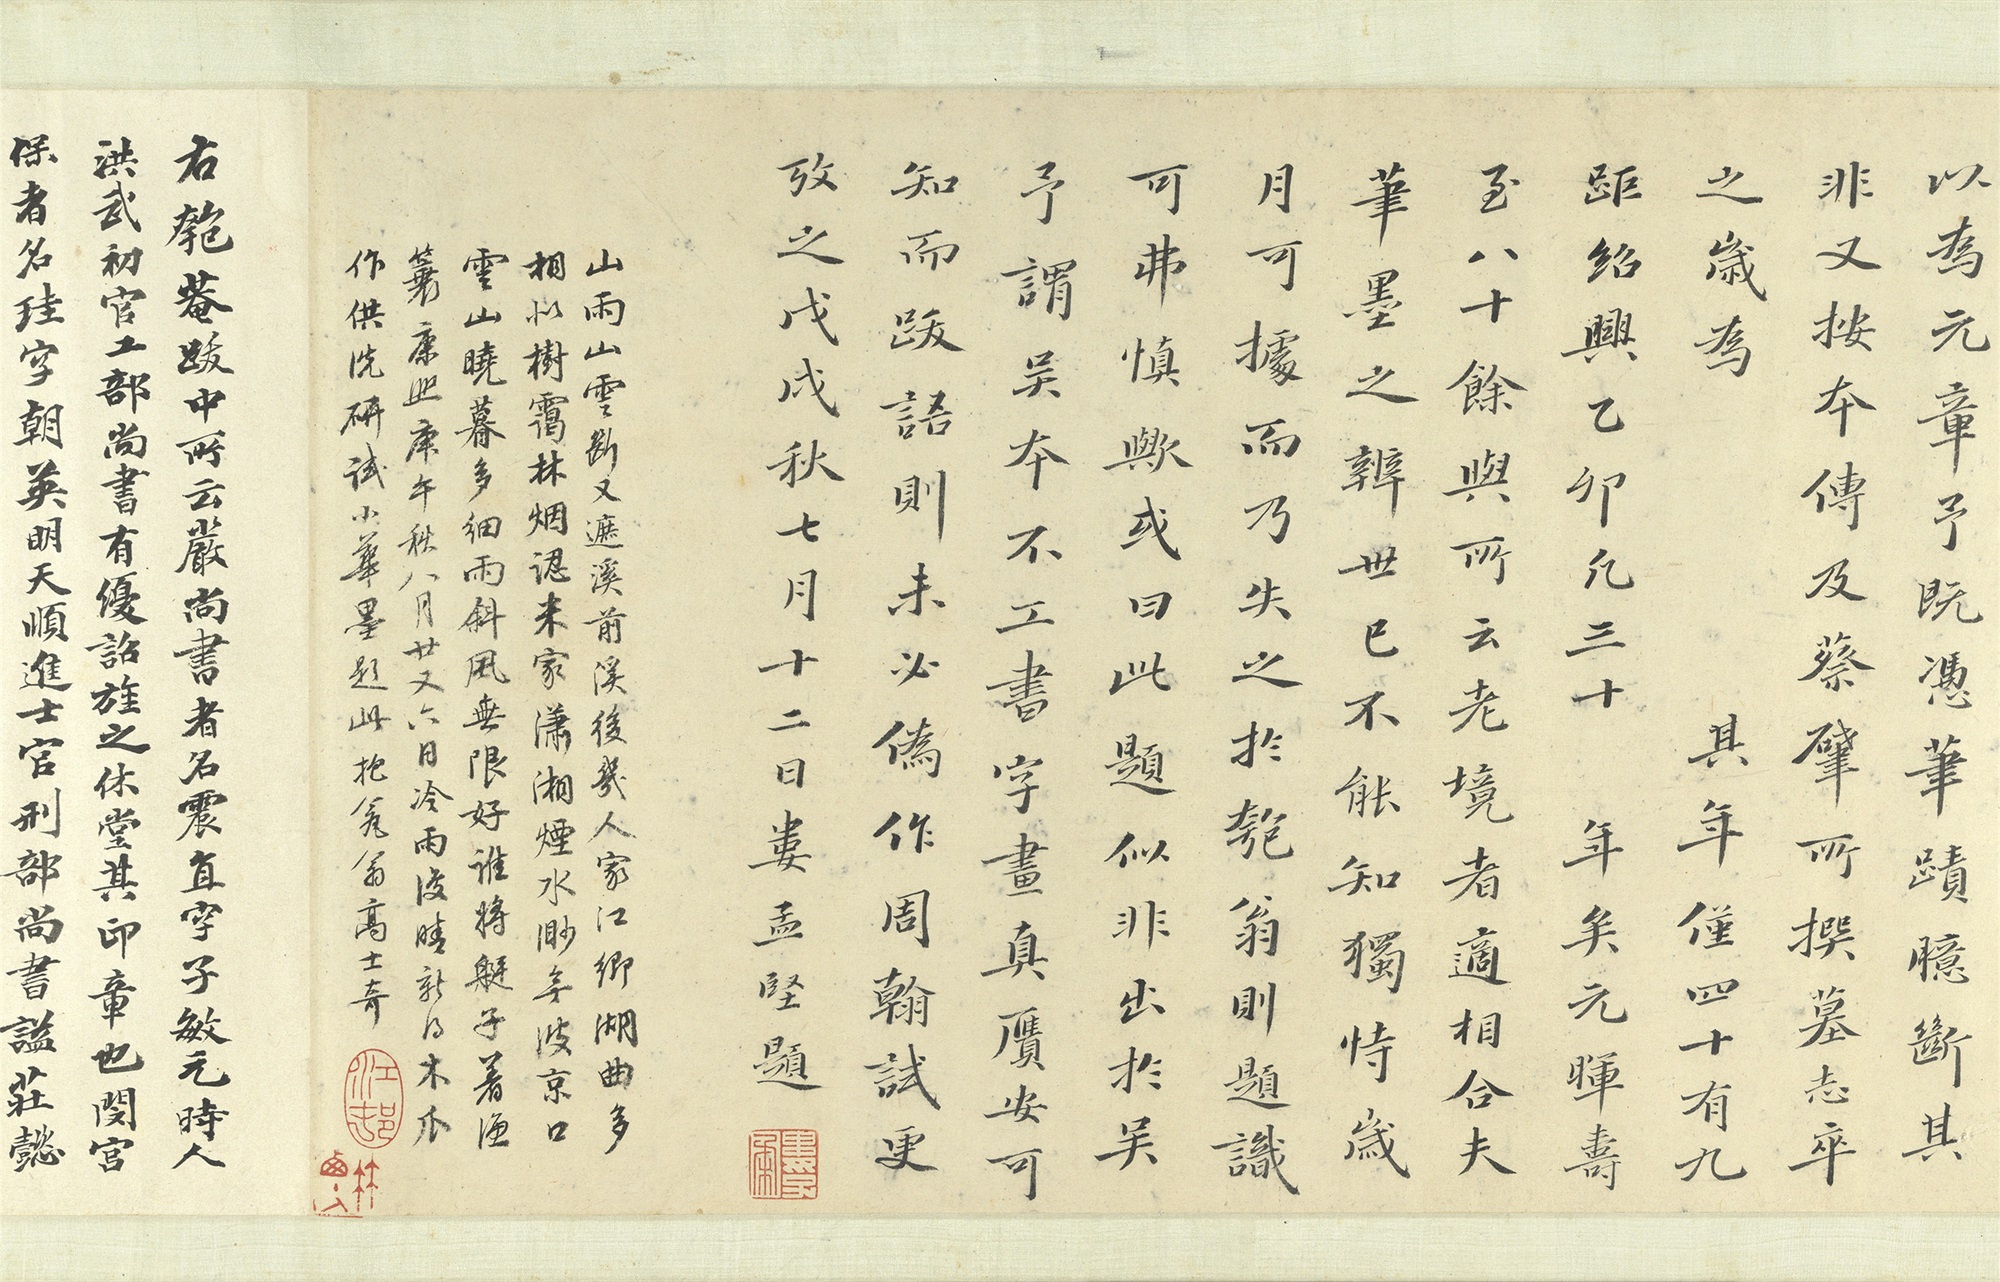 以為元章予既憑筆蹟臆斷其
非又按本傳及蔡肈所撰墓志卒
之歲為 其年僅四十有九
距紹興乙卯凡三十 年矣元暉壽
至八十餘與所云老境者適相合夫
筆墨之辨世已不能知獨恃歲
月可據而乃失之於匏翁則題識
可弗慎歟或曰此題似非出於吳
予謂吳本不工書字畫真贋安可
知而跋語則未必偽作周翰試更
攷之戊戌秋七月十二日婁孟堅題
山雨山雲斷又遮溪前溪後幾人家江鄉湖曲多
相似樹靄林烟認米家瀟湘煙水渺無波京口
雲山曉暮多細雨斜風無限好誰將艇子著漁
簑康熙庚午秋八月廿又六日冷雨後晴新得木瓜
作供洗研試小華墨題此抱瓮翁高士奇
右匏菴跋中所云嚴尚書者名震直字子敏元時人
洪武初官工部尚書有優詔旌之休堂其印章也閔宮
保者名珪字朝英明天順進士官刑部尚書謚莊懿
江邨